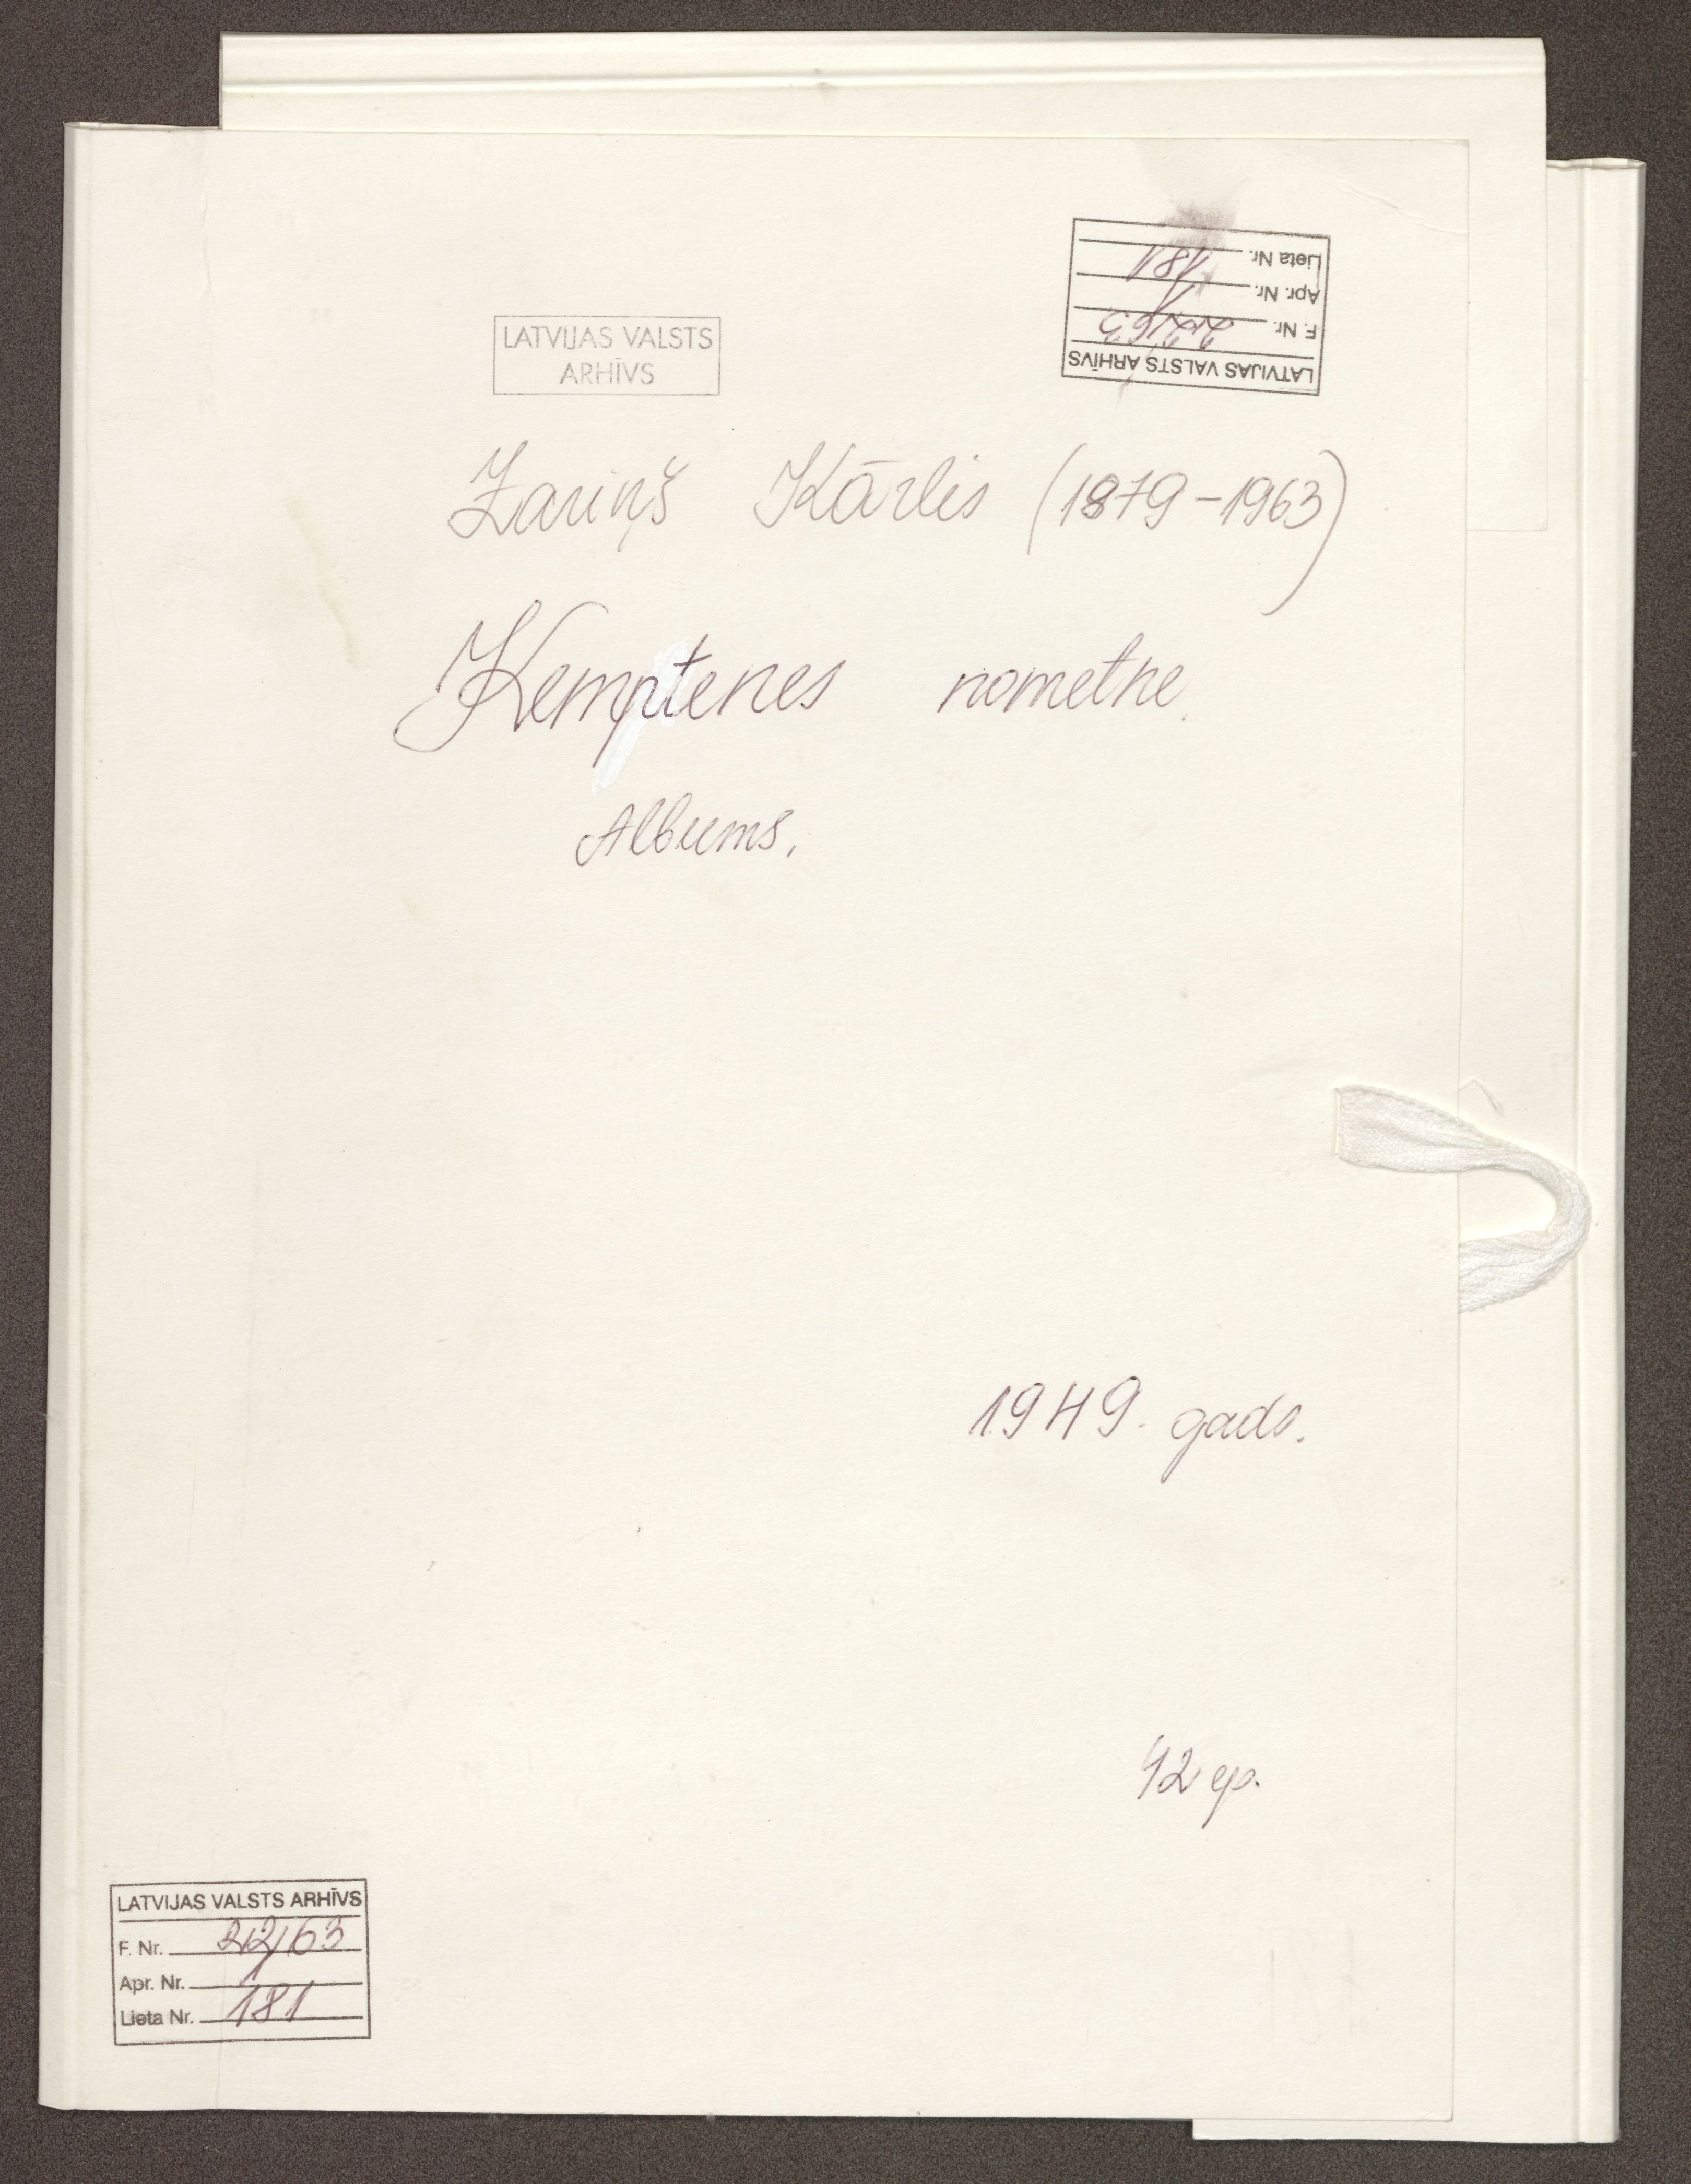 LATVIJAS VALSTS
ARHĪVS
LATVIJAS VALSTS ARHĪVS
F. Nr. 2263
Apr. Nr. 1
Lieta Nr. 181
Zariņš Kārlis (1879-1963)
Kemptenes nometne.
Albums.
1949. gads.
42 gp.
LATVIJAS VALSTS ARHĪVS
F. Nr. 2263
Apr. Nr. 1
Lieta Nr. 181